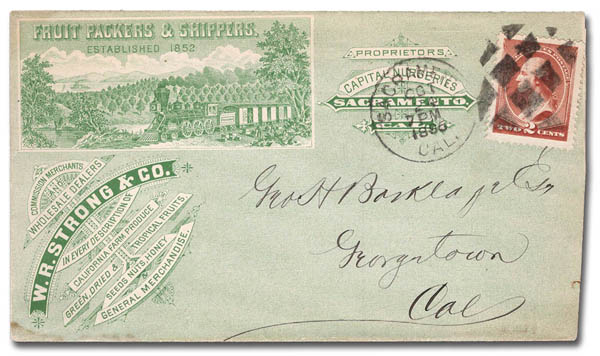 FRUIT PACKERS & SHIPPERS,
ESTABLISHED 1852
PROPRIETORS
CAPITAL NURSERIES
SACRAMENTO
CAL.
OCT
7 PM
CAL.
TWO 2 CENTS
COMMISSION MERCHANTS
AND
WHOLESALE DEALERS
W. R. STRONG & CO.
IN EVERY DESCRIPTION OF
CALIFORNIA FARM PRODUCE
GREEN, DRIED & TROPICAL FRUITS
SEEDS NUTS, HONEY
GENERAL MERCHANDISE.
Geo H
Georgetown
Cal